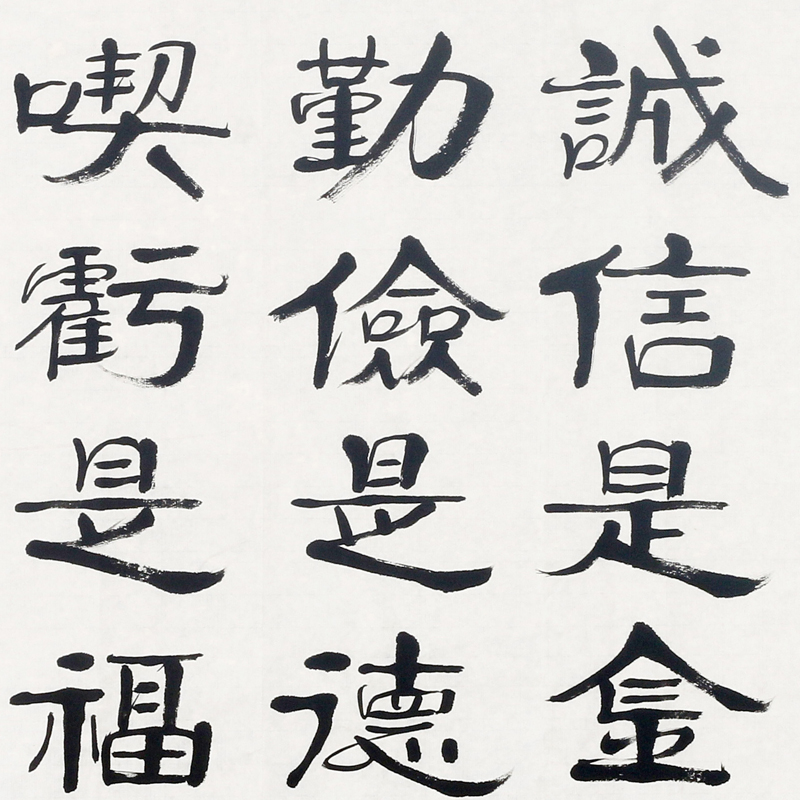 誠信是金
勤儉是德
喫虧是福